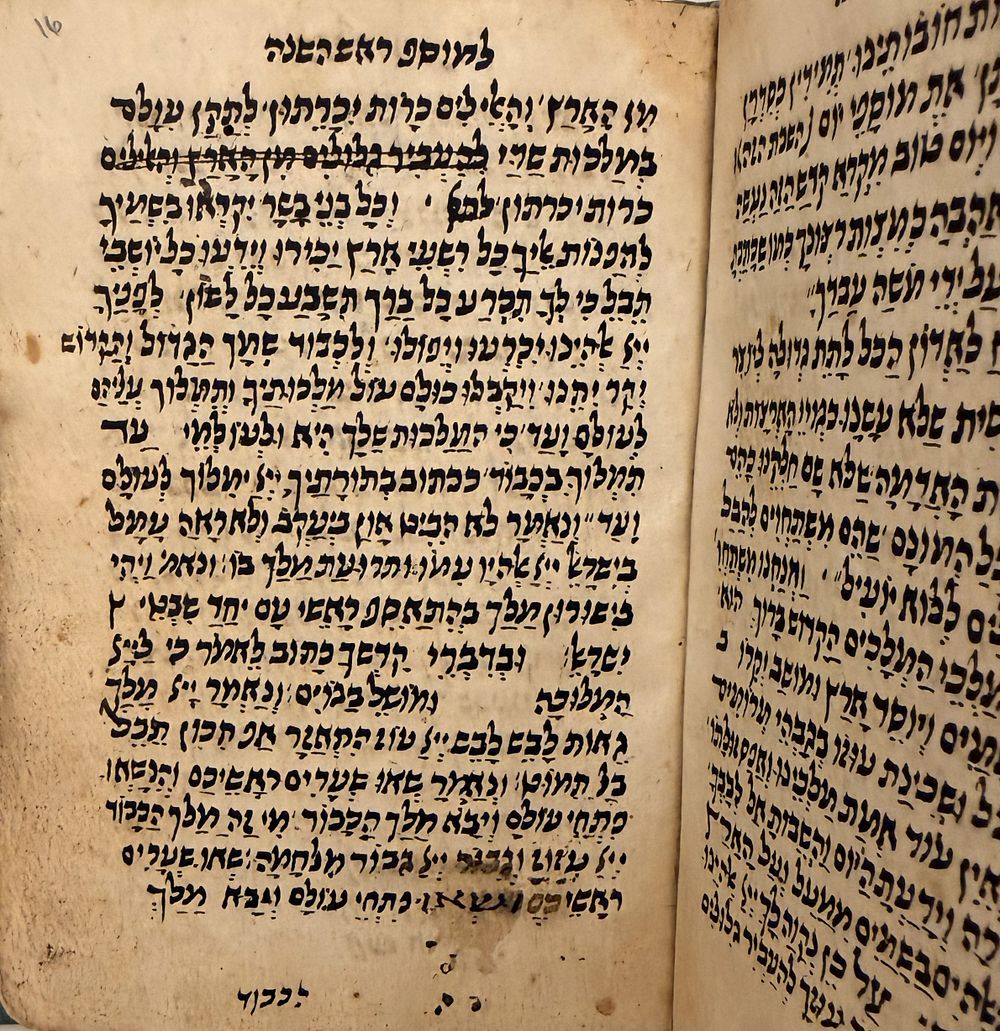 חובותינו תמידין כסדרן
את מוספי יום (השבת הזה)
ויום טוב מקרא קדש הזה נעשה
אהבה כמצות רצונך כמו שכתבת
על ידי משה עבדך"
לאדון הכל לתת גדולה ליוצר
שלא עשנו כגויי הארצות ולא
האדמה שלא שם חלקנו כהם
המונם שהם משתחוים להבל
לבוא יועיל" ואנחנו משתחוי'
המלכים הקדוש ברוך הוא
ויוסד ארץ ומושב יקרו ב
ושכינת עוזו בגבהי מרומים
אין עוד אמת מלכינו ואפס זולתו
וידעת היום והשבות אל לבבך
בשמים ממעל ועל הארץ
על כן נקוה לך ייי אלהינו
להעביר גלולים
16
למוסף ראש השנה
מן הארץ והאלילים כרות יכרתון לתקן עולם
במלכות שדי להעביר גלולים מן הארץ והאלילים
כרות יכרתון וכל בני בשר יקראו בשמיך
להפנות אליך כל רשעי ארץ יכירו וידעו כל יושבי
תבל כי לך תכרע כל ברך תשבע כל לשון לפניך
ייי אלהינו יכרעו ויפולו ולכבוד שמך הגדול והקדוש
יקר יתנו ויקבלו כולם עול מלכותיך ותמלוך עליהם
לעולם ועד כי המלכות שלך היא ולעולמי עד
תמלוך בכבוד ככתוב בתורתיך ייי ימלוך לעולם
ועד" ונאמר לא הביט און ביעקב ולא ראה עמל
בישראל ייי אלהיו עמו ותרועת מלך בו ונאמ' ויהי
בישורון מלך בהתאסף ראשי עם יחד שבטי
ישראל ובדברי קדשך כתוב לאמר כי לייי
המלוכה ומושל בגוים ונאמר ייי מלך
גאות לבש לבש ייי עוז התאזר אף תכון תבל
בל תמוט ונאמר שאו שערים ראשיכם והנשאו
פתחי עולם ויבא מלך הכבוד מי זה מלך הכבוד
ייי עזוז וגבור ייי גבור מלחמה שאו שערים
ראשיכם ושאו פתחי עולם ויבא מלך
הכבוד